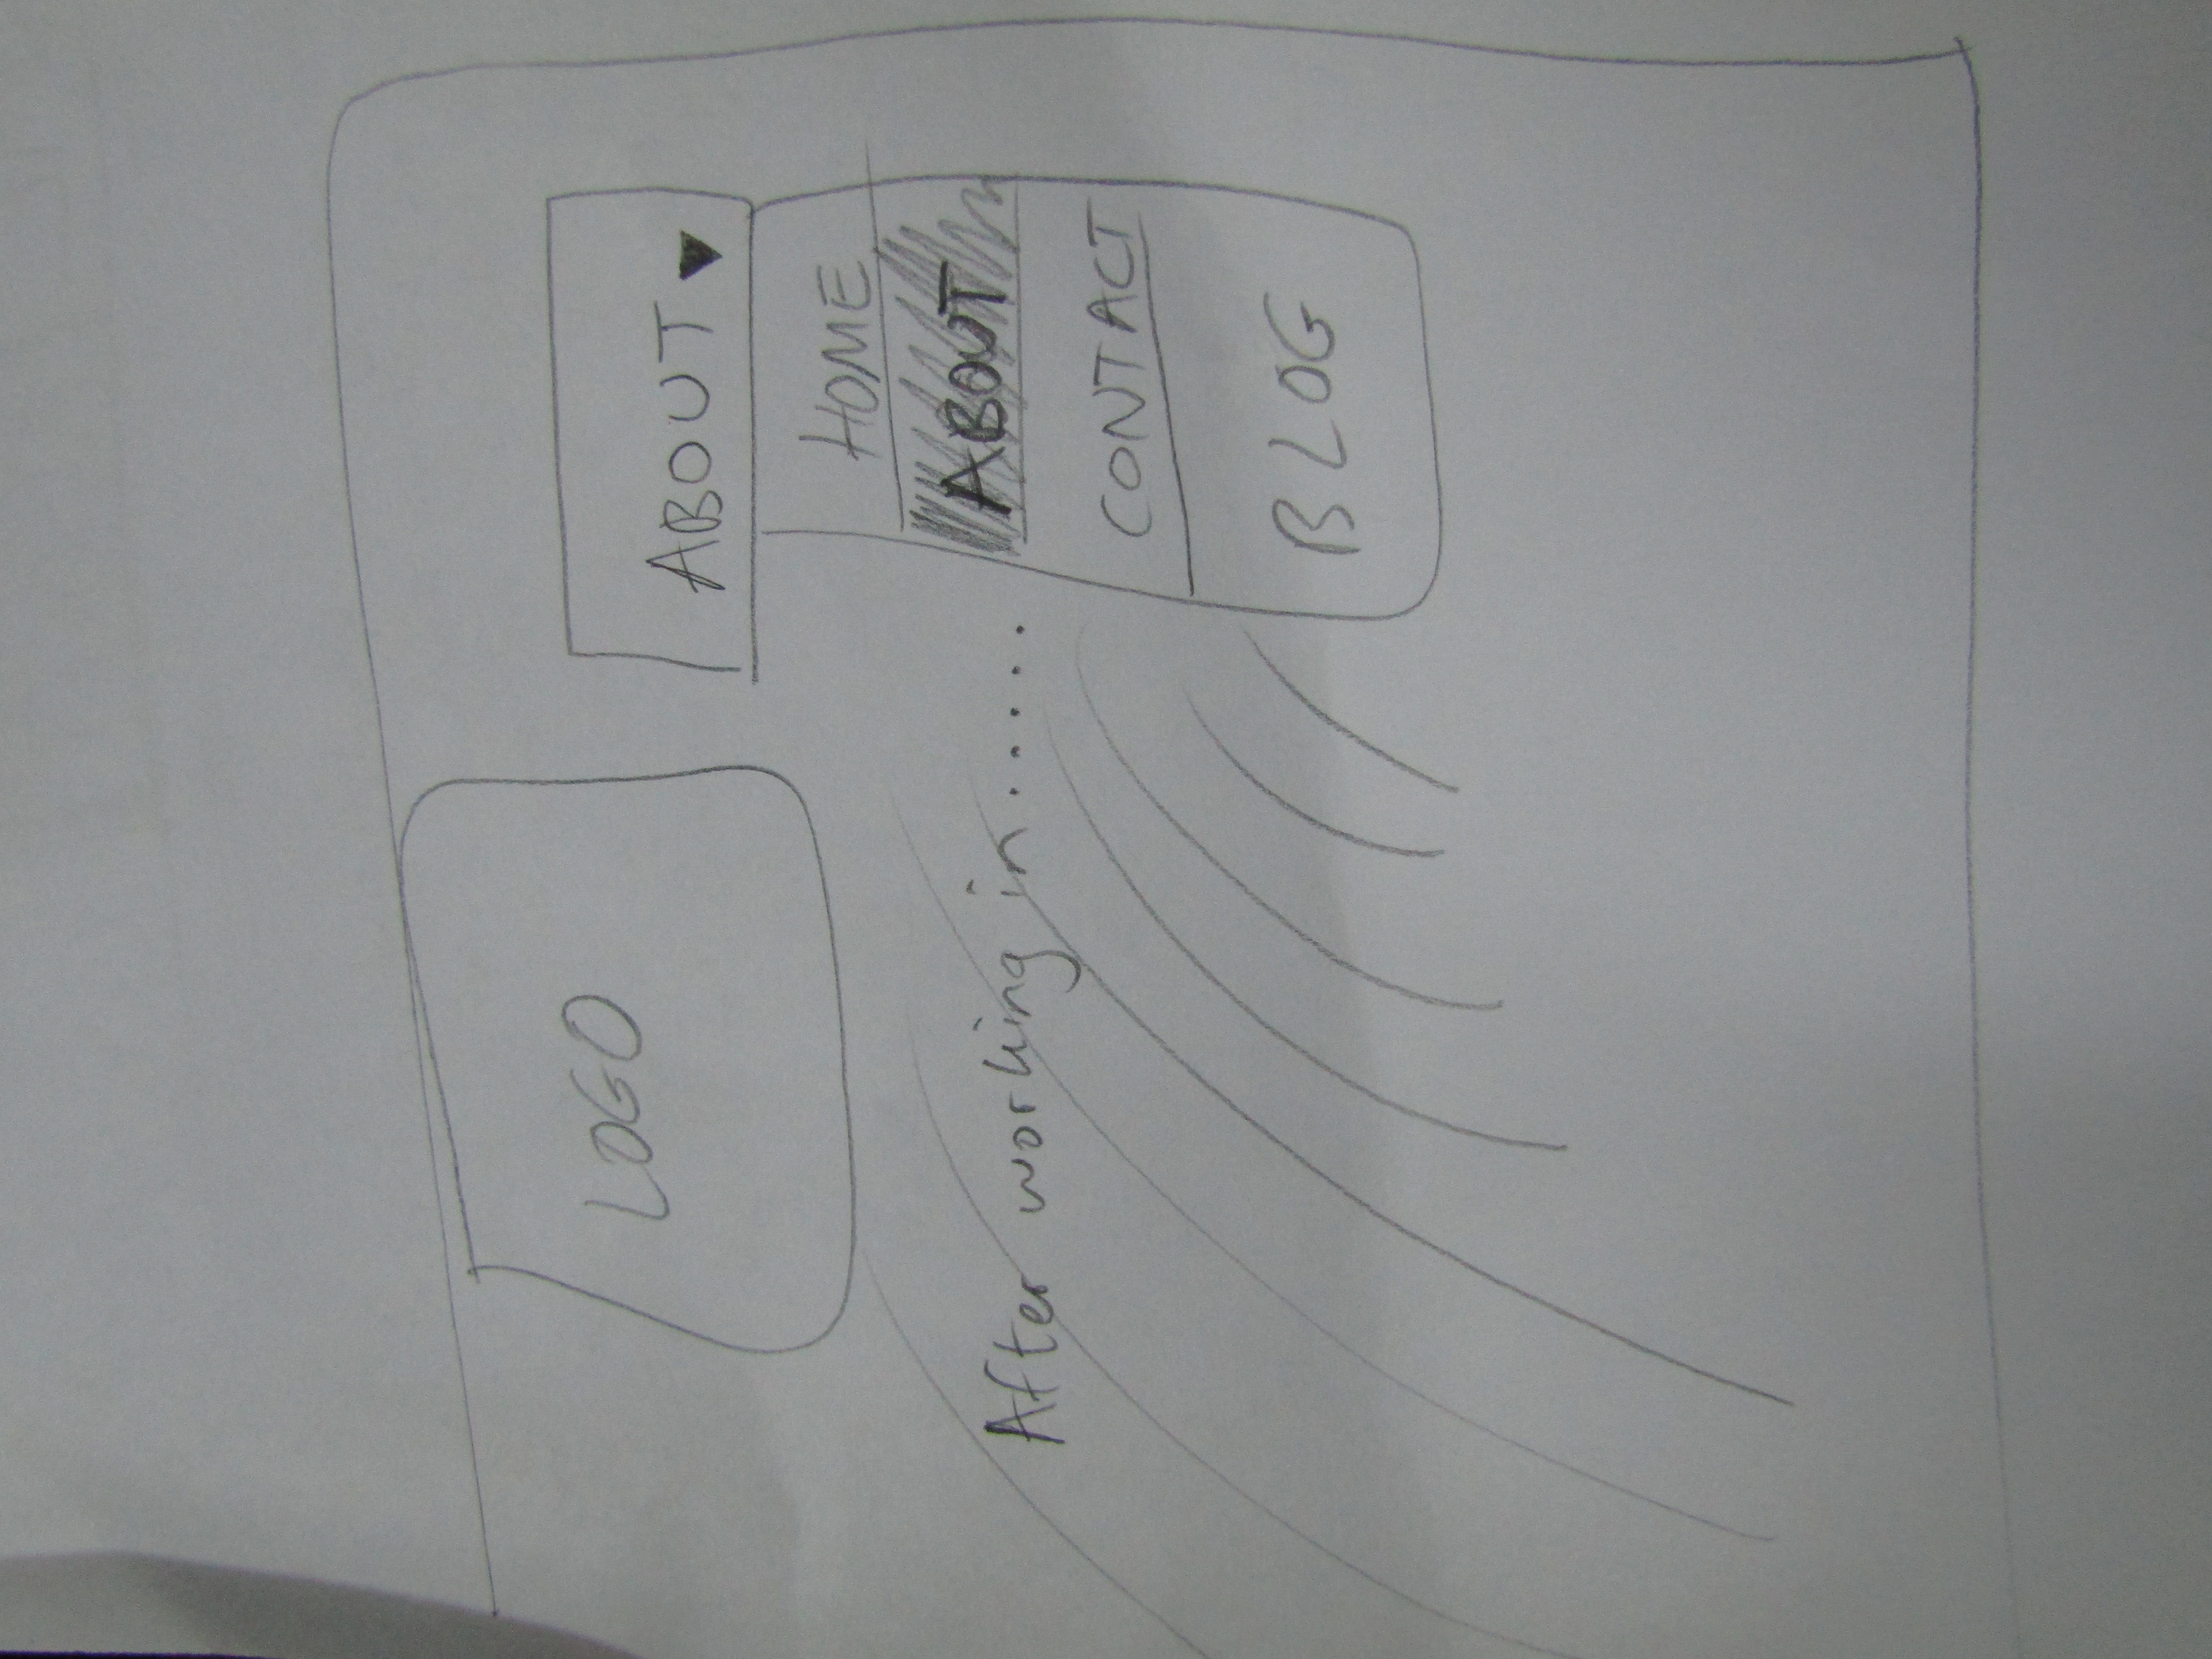 LOGO
ABOUT ▼
HOME
ABOUT
CONTACT
BLOG
After working in.....